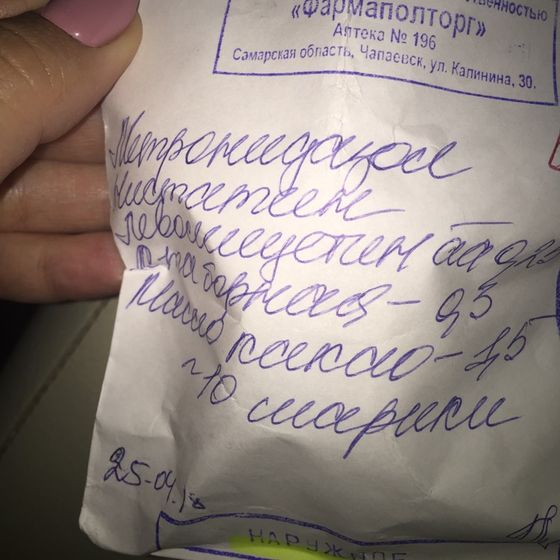 ственностью
«Фармаполторг»
Аптека № 196
Самарская область, Чапаевск, ул. Калинина, 30.
Метронидазол
Нистатин
Левомицетин аа 0,25
к-та борная - 0,3
Масло какао - 1,5
~10 шарики
25-04.18
НАРУЖНОЕ